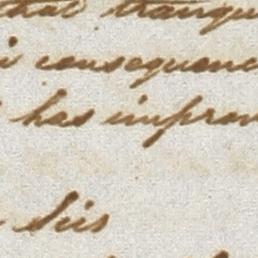 that tranqu
consequenc
has improv
Sir